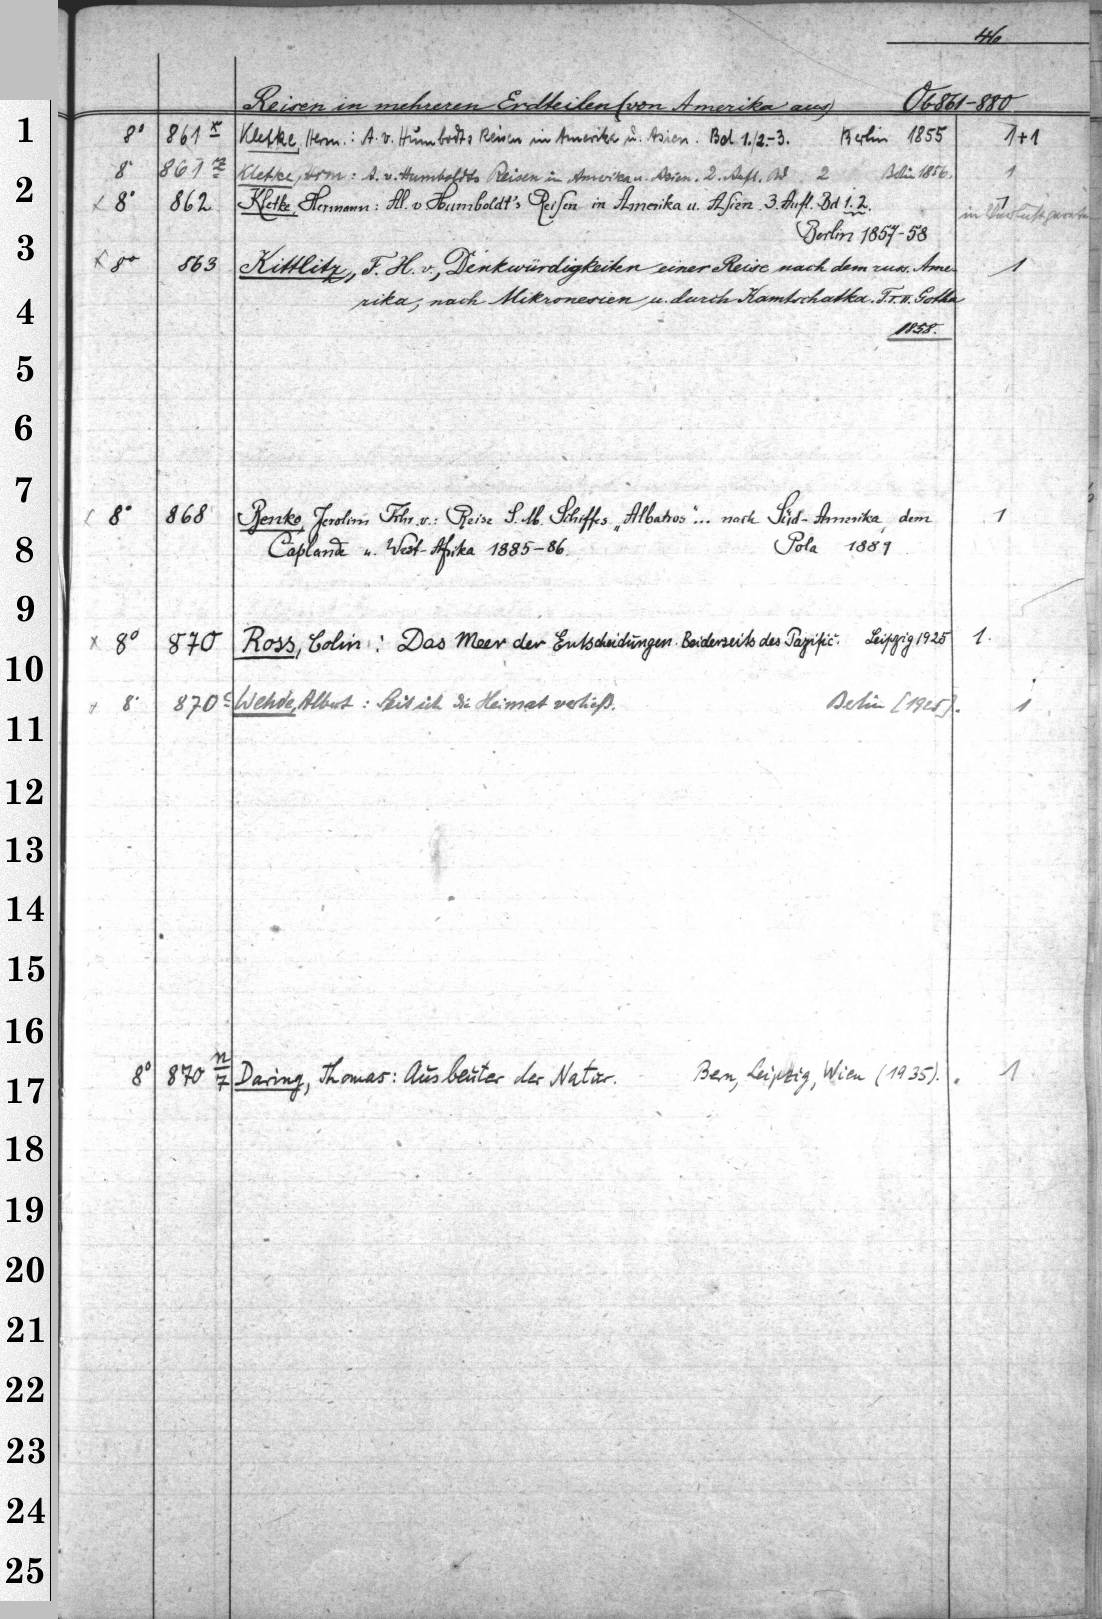 46
Reisen in mehreren Erdteilen (von Amerika aus) Ob 861-880
1
8° 861 x Kletke, Herm.: A. v. Humbodts Reisen in Amerika u. Asien. Bd. 1./2.-3. Berlin 1855 1+1
8° 861 Kletke, Herm: A. v. Humboldts Reisen in Amerika u. Asien. 2. Aufl. Bd 2 Berlin 1856. 1
2
x 8° 862 Kletke, Hermann: Al. v Humboldt's Reisen in Amerika u. Asien. 3. Aufl. Bd 1. 2. 1
Berlin 1857-58
3
x 8° 863 Kittlitz, F. H. v., Denkwürdigkeiten einer Reise nach dem russ. Ame- 1
rika, nach Mikronesien u. durch Kamtschatka. Gotha
4
1858.
5
6
7
8° 868 Benko, Jerolim Frhr. v.: Reise S. M. Schiffes „Albatros"... nach Süd-Amerika, dem 1
8
Caplande u. West-Afrika 1885-86. Pola 1889
9
x 8° 870 Ross, Colin: Das Meer der Entscheidungen. Beiderseits des Pazific. Leipzig 1925 1.
10
8° 870 c Wehde, Albert: Seit ich die Heimat verließ. Berlin [1925]. 1
11
12
13
14
15
16
8° 870 n/7 Daring, Thomas: Ausbeuter der Natur. Bern, Leipzig, Wien (1935). 1
17
18
19
20
21
22
23
24
25